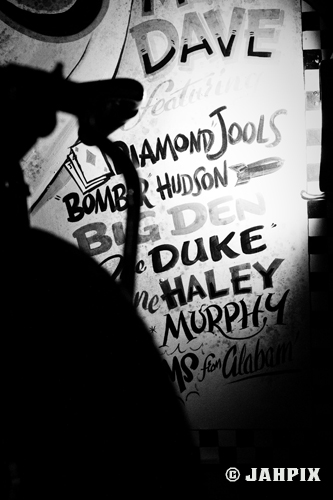 DAVE
featuring
DIAMOND JOOLS
"BOMBER" HUDSON
BIG DEN
The DUKE"
HALEY
MURPHY
from Alabam'
© JAHPIX